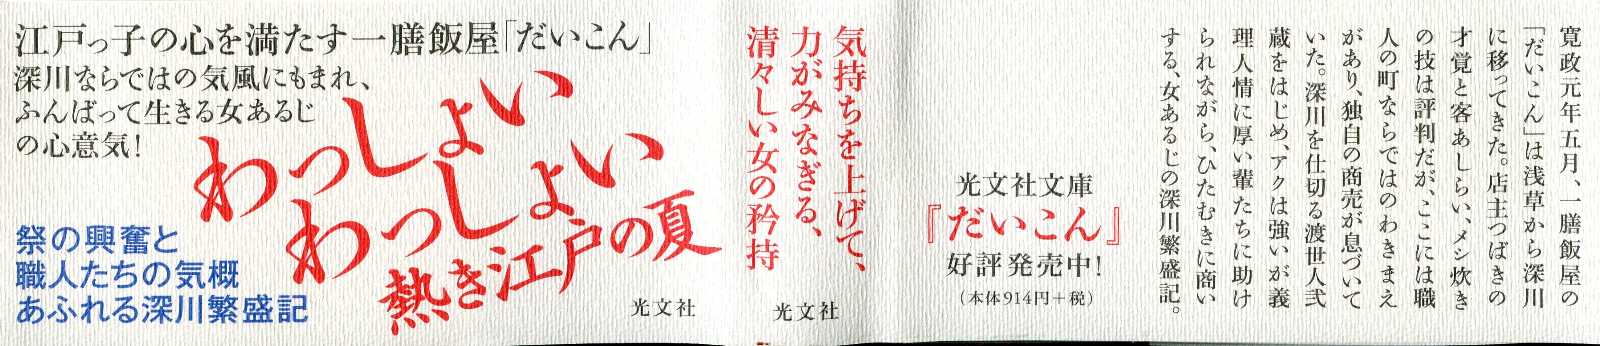 江戸っ子の心を満たす一膳飯屋「だいこん」
深川ならではの気風にもまれ、
ふんばって生きる女あるじ
の心意気!
わっしょい
わっしょい
熱き江戸の夏
祭の興奮と
職人たちの気概
あふれる深川繁盛記
光文社
気持ちを上げて、
力がみなぎる、
清々しい女の矜持
光文社
光文社文庫
『だいこん』
好評発売中!
(本体914円+税)
寛政元年五月、一膳飯屋の
「だいこん」は浅草から深川
に移ってきた。店主つばきの
才覚と客あしらい、メシ炊き
の技は評判だが、ここには職
人の町ならではのわきまえ
があり、独自の商売が息づいて
いた。深川を仕切る渡世人弐
蔵をはじめ、アクは強いが義
理人情に厚い輩たちに助け
られながら、ひたむきに商い
する、女あるじの深川繁盛記。